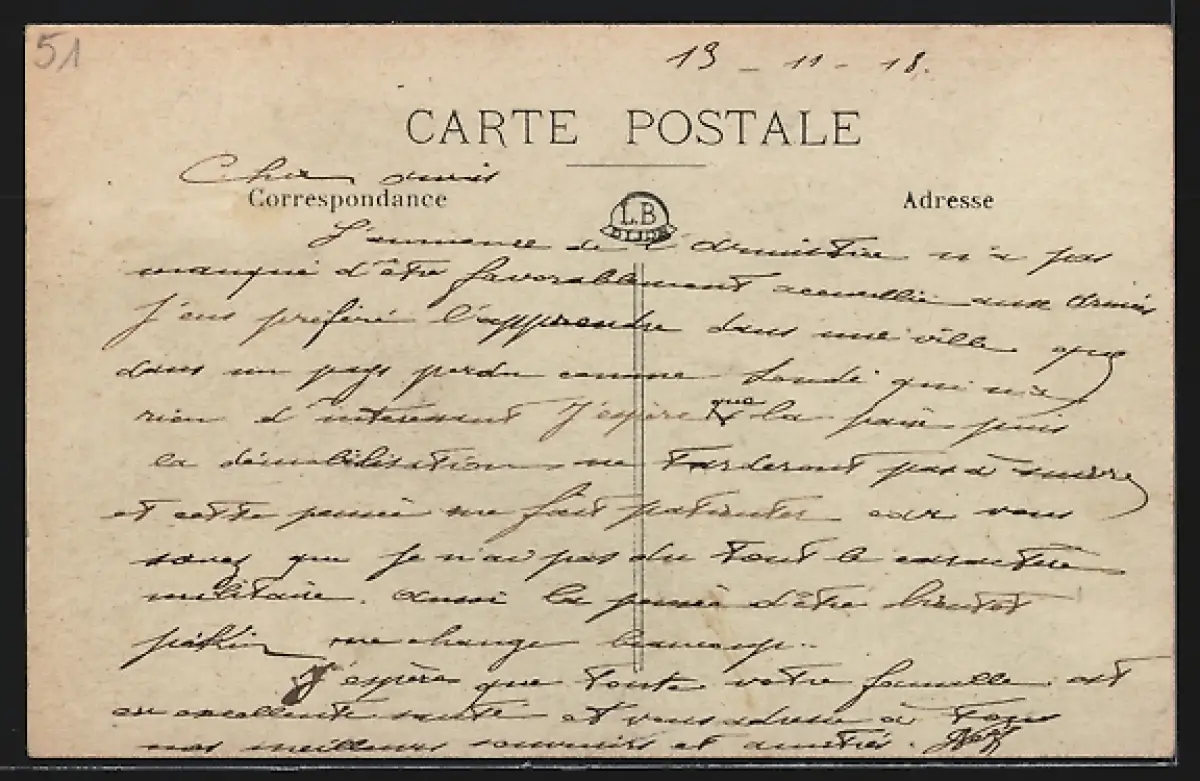 51
13 - 11 - 18.
CARTE POSTALE
Cher amis
Correspondance
Adresse
L.B
DIJON
L'annonce de l'armistice n'a pas
manqué d'être favorablement accueillie aux armées
J'eus préféré l'apprendre dans une ville que
dans un pays perdu comme qui n'a
rien d'intéressant J'espère que la paix puis
la démobilisation ne tarderont pas à suivre
et cette pensée me fait patienter car vous
savez que je n'ai pas du tout le caractère
militaire. aussi la pensée d'être bientôt
pékin me change beaucoup..
J'espère que toute votre famille est
en excellente santé et vous adresse à tous
nos meilleurs souvenirs et amitiés.